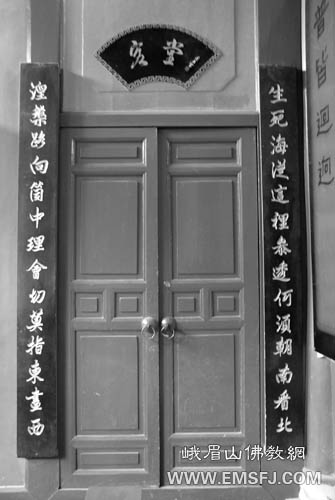 客堂
生死海從這裡叅透何須朝南看北
涅槃路向箇中理會切莫指東畫西
普皆迴
峨眉山佛教網
WWW.EMSFJ.COM